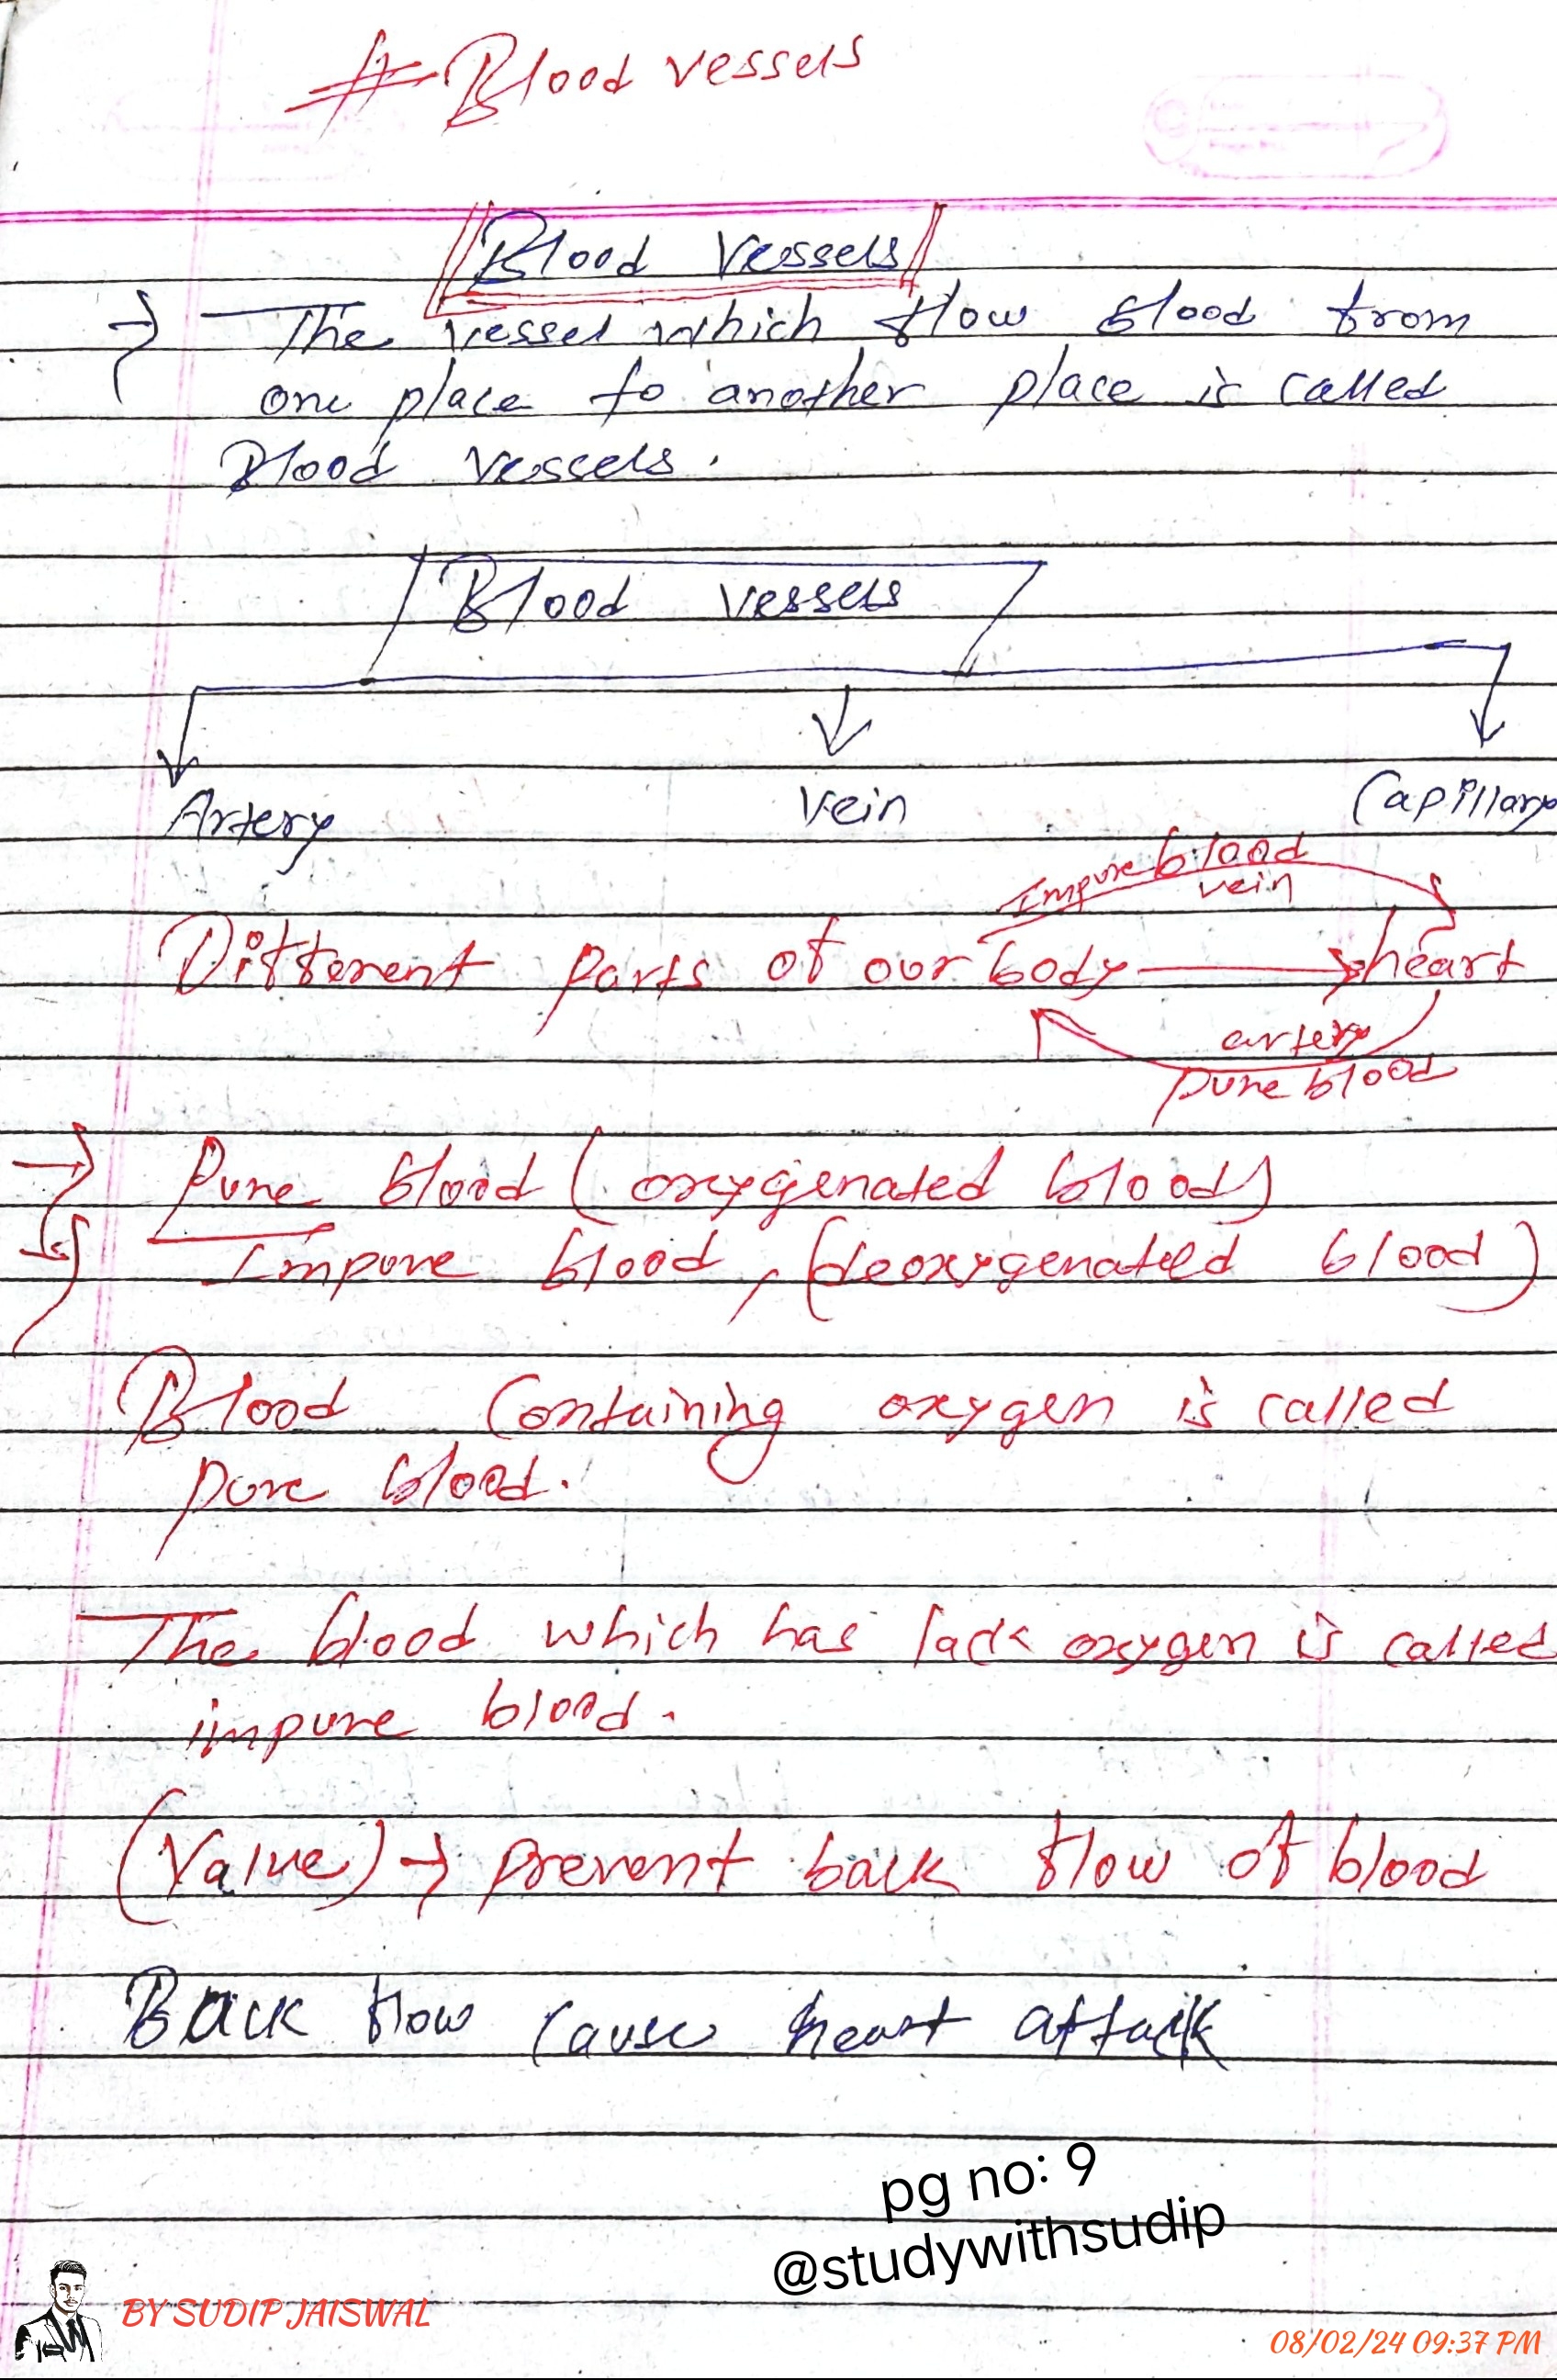 # Blood vessels
Blood Vessels
→ The vessel which flow blood from
one place to another place is called
Blood Vessels.
Blood vessels
Artery Vein Capillary
Impure blood
vein
Different parts of our body → heart
artery
pure blood
→ Pure blood (oxygenated blood)
→ Impure blood, (deoxygenated blood)
Blood Containing oxygen is called
pure blood.
The blood which has lack oxygen is called
impure blood.
(Valve) → prevent back flow of blood
Back flow cause heart attack
pg no: 9
@studywithsudip
BY SUDIP JAISWAL
08/02/24 09:37 PM